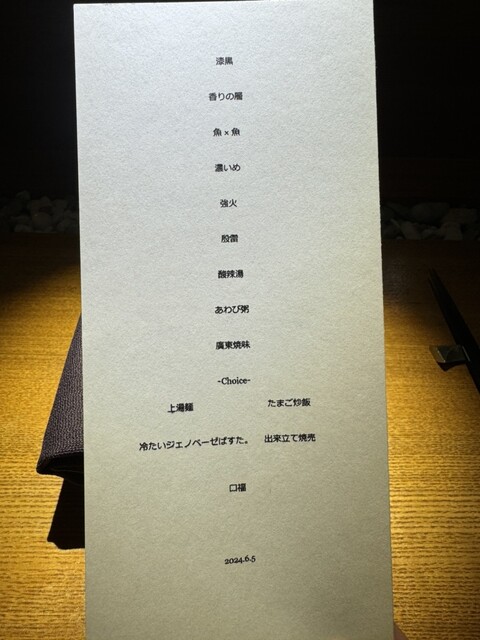 漆黒
香りの層
魚×魚
濃いめ
強火
殷雷
酸辣湯
あわび粥
廣東焼味
-Choice-
上湯麺 たまご炒飯
冷たいジェノベーゼぱすた。 出来立て焼売
口福
2024.6.5